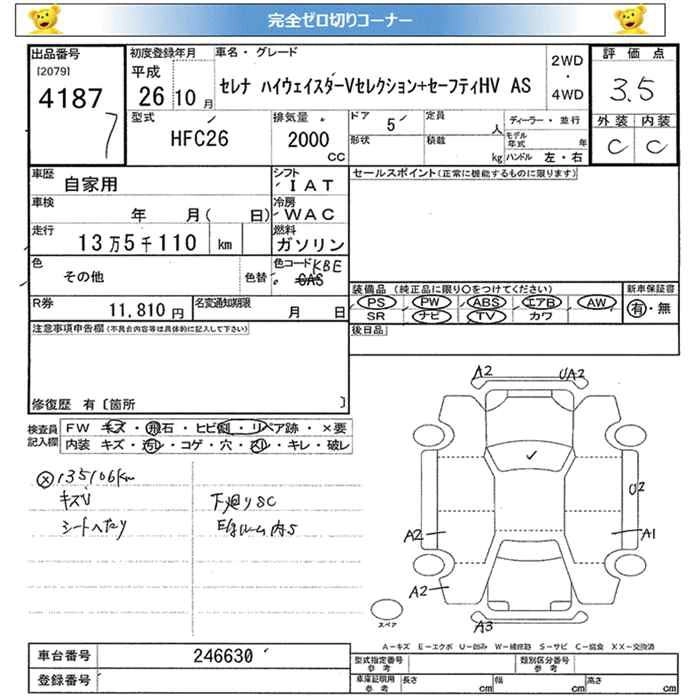 完全ゼロ切りコーナー
出品番号
[2079]
4187
7
初度登録年月
平成
26 10 月
車名・グレード
セレナ ハイウェイスターVセレクション+セーフティHV AS
2WD
・
4WD
評価点
3.5
外装 内装
C C
型式
HFC26
排気量
2000
CC
ドア
5
定員
人
形状
積載
kg
ディーラー・並行
モデル年式 年
ハンドル 左・右
車歴
自家用
シフト
IAT
車検
年 月( 日)
冷房
WAC
走行
13万5千110 km
燃料
ガソリン
色
その他
色替
色コード KBE
R券
11,810 円
名変通知期限
月 日
セールスポイント(正常に機能するものに限ります)
装備品 (純正品に限り○をつけてください)
PS PW ABS エアB AW
SR ナビ TV カワ
新車保証書
有・無
後日品
注意事項申告欄(不具合内容等は具体的に記入して下さい)
修復歴 有〔箇所 〕
検査員
記入欄
FW キズ・飛石・ヒビ割・リペア跡・×要
内装 キズ・汚レ・コゲ・穴・スレ・キレ・破レ
135106km
キズV
シートヘタリ
下廻りSC
A2
UA2
U2
A2
A1
A2
A3
スペア
A-キズ E-エクボ U-凹み W-補修跡 S-サビ C-腐食 XX-交換済
車台番号
246630
登録番号
型式指定番号
参考
類別区分番号
参考
車庫証明用
参考
長さ cm
幅 cm
高さ cm